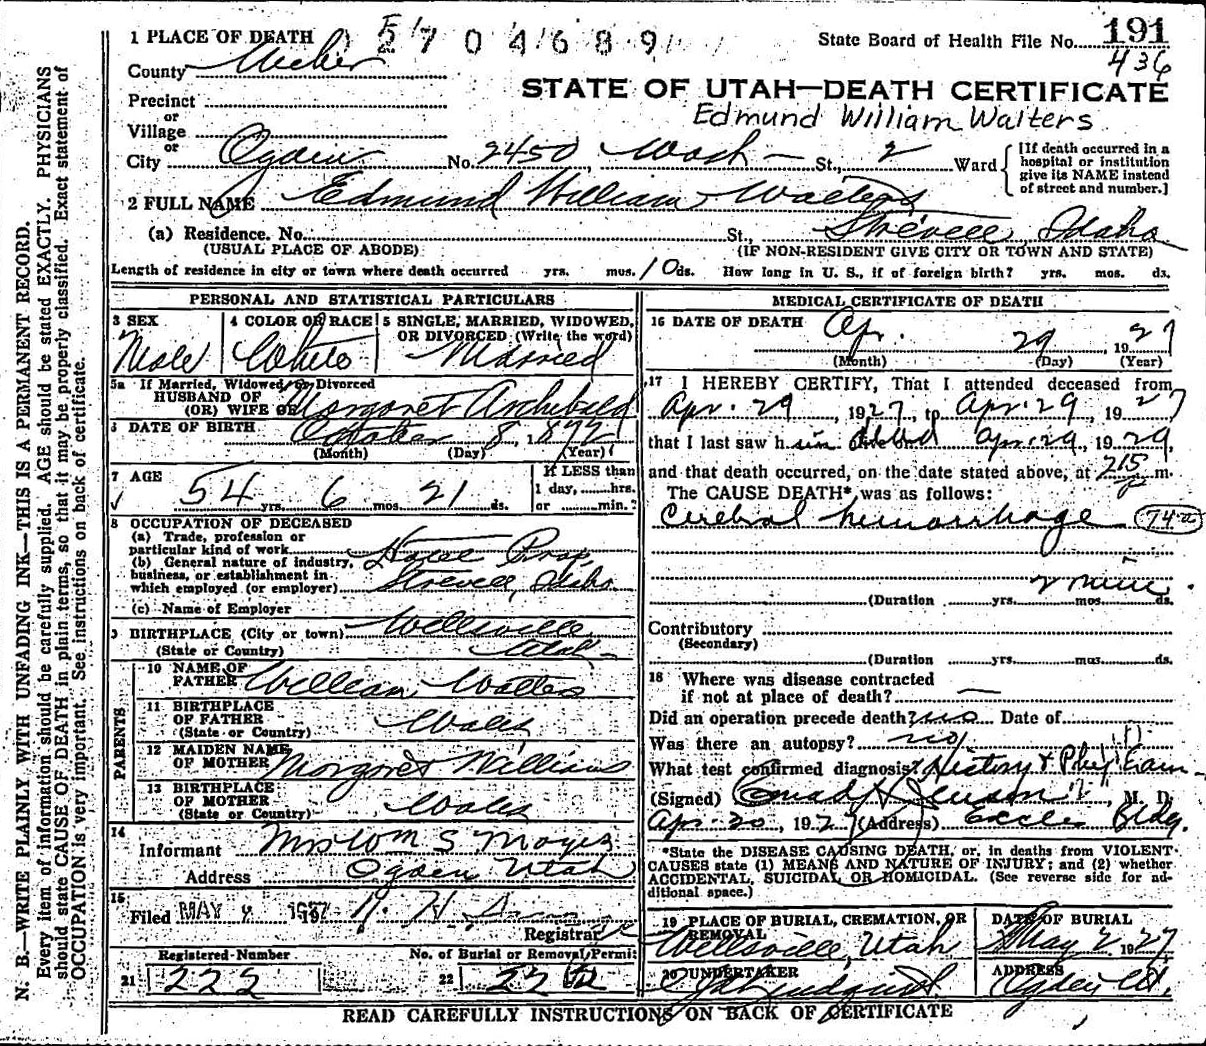 1 PLACE OF DEATH 5 2 7 0 4 6 8 9
State Board of Health File No. 191
436
County Weber
STATE OF UTAH—DEATH CERTIFICATE
Precinct
or
Edmund William Walters
Village
or
City Ogden No. 2450 Wash- St., 2 Ward
[If death occurred in a hospital or institution give its NAME instead of street and number.]
2 FULL NAME Edmund William Walters
(a) Residence. No. St., Strevell, Idaho
(USUAL PLACE OF ABODE) (IF NON-RESIDENT GIVE CITY OR TOWN AND STATE)
Length of residence in city or town where death occurred yrs. mos. 10 ds. How long in U. S., if of foreign birth? yrs. mos. ds.
PERSONAL AND STATISTICAL PARTICULARS
3 SEX 4 COLOR OR RACE 5 SINGLE, MARRIED, WIDOWED, OR DIVORCED (Write the word)
Male White Married
5a If Married, Widowed or Divorced
HUSBAND OF
(OR) WIFE OF Margaret Archibald
6 DATE OF BIRTH October 8, 1872
(Month) (Day) (Year)
7 AGE 54 yrs. 6 mos. 21 ds.
If LESS than 1 day, hrs. or min.?
8 OCCUPATION OF DECEASED
(a) Trade, profession or
particular kind of work
(b) General nature of industry,
business, or establishment in
which employed (or employer) Strevell, Idaho
(c) Name of Employer
9 BIRTHPLACE (City or town) Wellsville
(State or Country) Utah
PARENTS
10 NAME OF FATHER William Walters
11 BIRTHPLACE OF FATHER (State or Country) Wales
12 MAIDEN NAME OF MOTHER Margaret Williams
13 BIRTHPLACE OF MOTHER (State or Country) Wales
14 Informant Mrs Wm S
Address Ogden Utah
15 Filed MAY 1927
Registrar
Registered Number No. of Burial or Removal Permit
21 222 22
MEDICAL CERTIFICATE OF DEATH
16 DATE OF DEATH Ap. 29 1927
(Month) (Day) (Year)
17 I HEREBY CERTIFY, That I attended deceased from
Apr. 29, 1927, to Apr. 29 1927
that I last saw h Apr. 29, 1929,
and that death occurred, on the date stated above, at 215 m.
The CAUSE DEATH* was as follows:
Cerebral hemorrhage 74a
(Duration yrs. mos. ds.
Contributory
(Secondary)
(Duration yrs. mos. ds.
18 Where was disease contracted
if not at place of death? —
Did an operation precede death? no Date of
Was there an autopsy? no
What test confirmed diagnosis? History & Phys Exam
(Signed) Jenson, M. D.
Apr 20, 1927 (Address) Eccles Bldg.
*State the DISEASE CAUSING DEATH, or, in deaths from VIOLENT
CAUSES state (1) MEANS AND NATURE OF INJURY; and (2) whether
ACCIDENTAL, SUICIDAL OR HOMICIDAL. (See reverse side for additional space.)
19 PLACE OF BURIAL, CREMATION, OR REMOVAL DATE OF BURIAL
Wellsville, Utah May 2 1927
20 UNDERTAKER ADDRESS
Ogden Ut.
READ CAREFULLY INSTRUCTIONS ON BACK OF CERTIFICATE
N. B.—WRITE PLAINLY WITH UNFADING INK—THIS IS A PERMANENT RECORD.
Every item of information should be carefully supplied. AGE should be stated EXACTLY. PHYSICIANS
should state CAUSE OF DEATH in plain terms, so that it may be properly classified. Exact statement of
OCCUPATION is very important. See instructions on back of certificate.